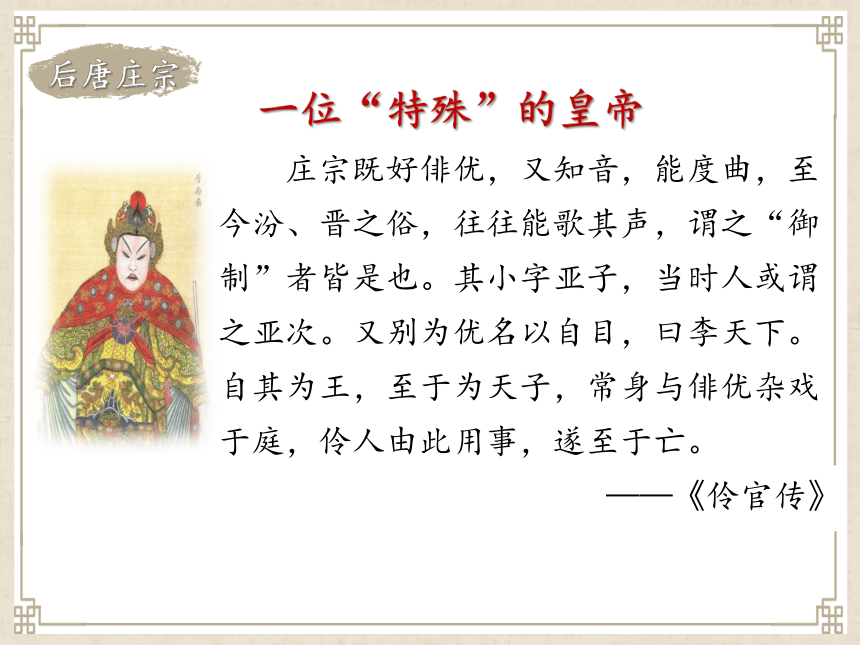 后唐庄宗
一位“特殊”的皇帝
庄宗既好俳优，又知音，能度曲，至
今汾、晋之俗，往往能歌其声，谓之“御
制”者皆是也。其小字亚子，当时人或谓
之亚次。又别为优名以自目，曰李天下。
自其为王，至于为天子，常身与俳优杂戏
于庭，伶人由此用事，遂至于亡。
——《伶官传》